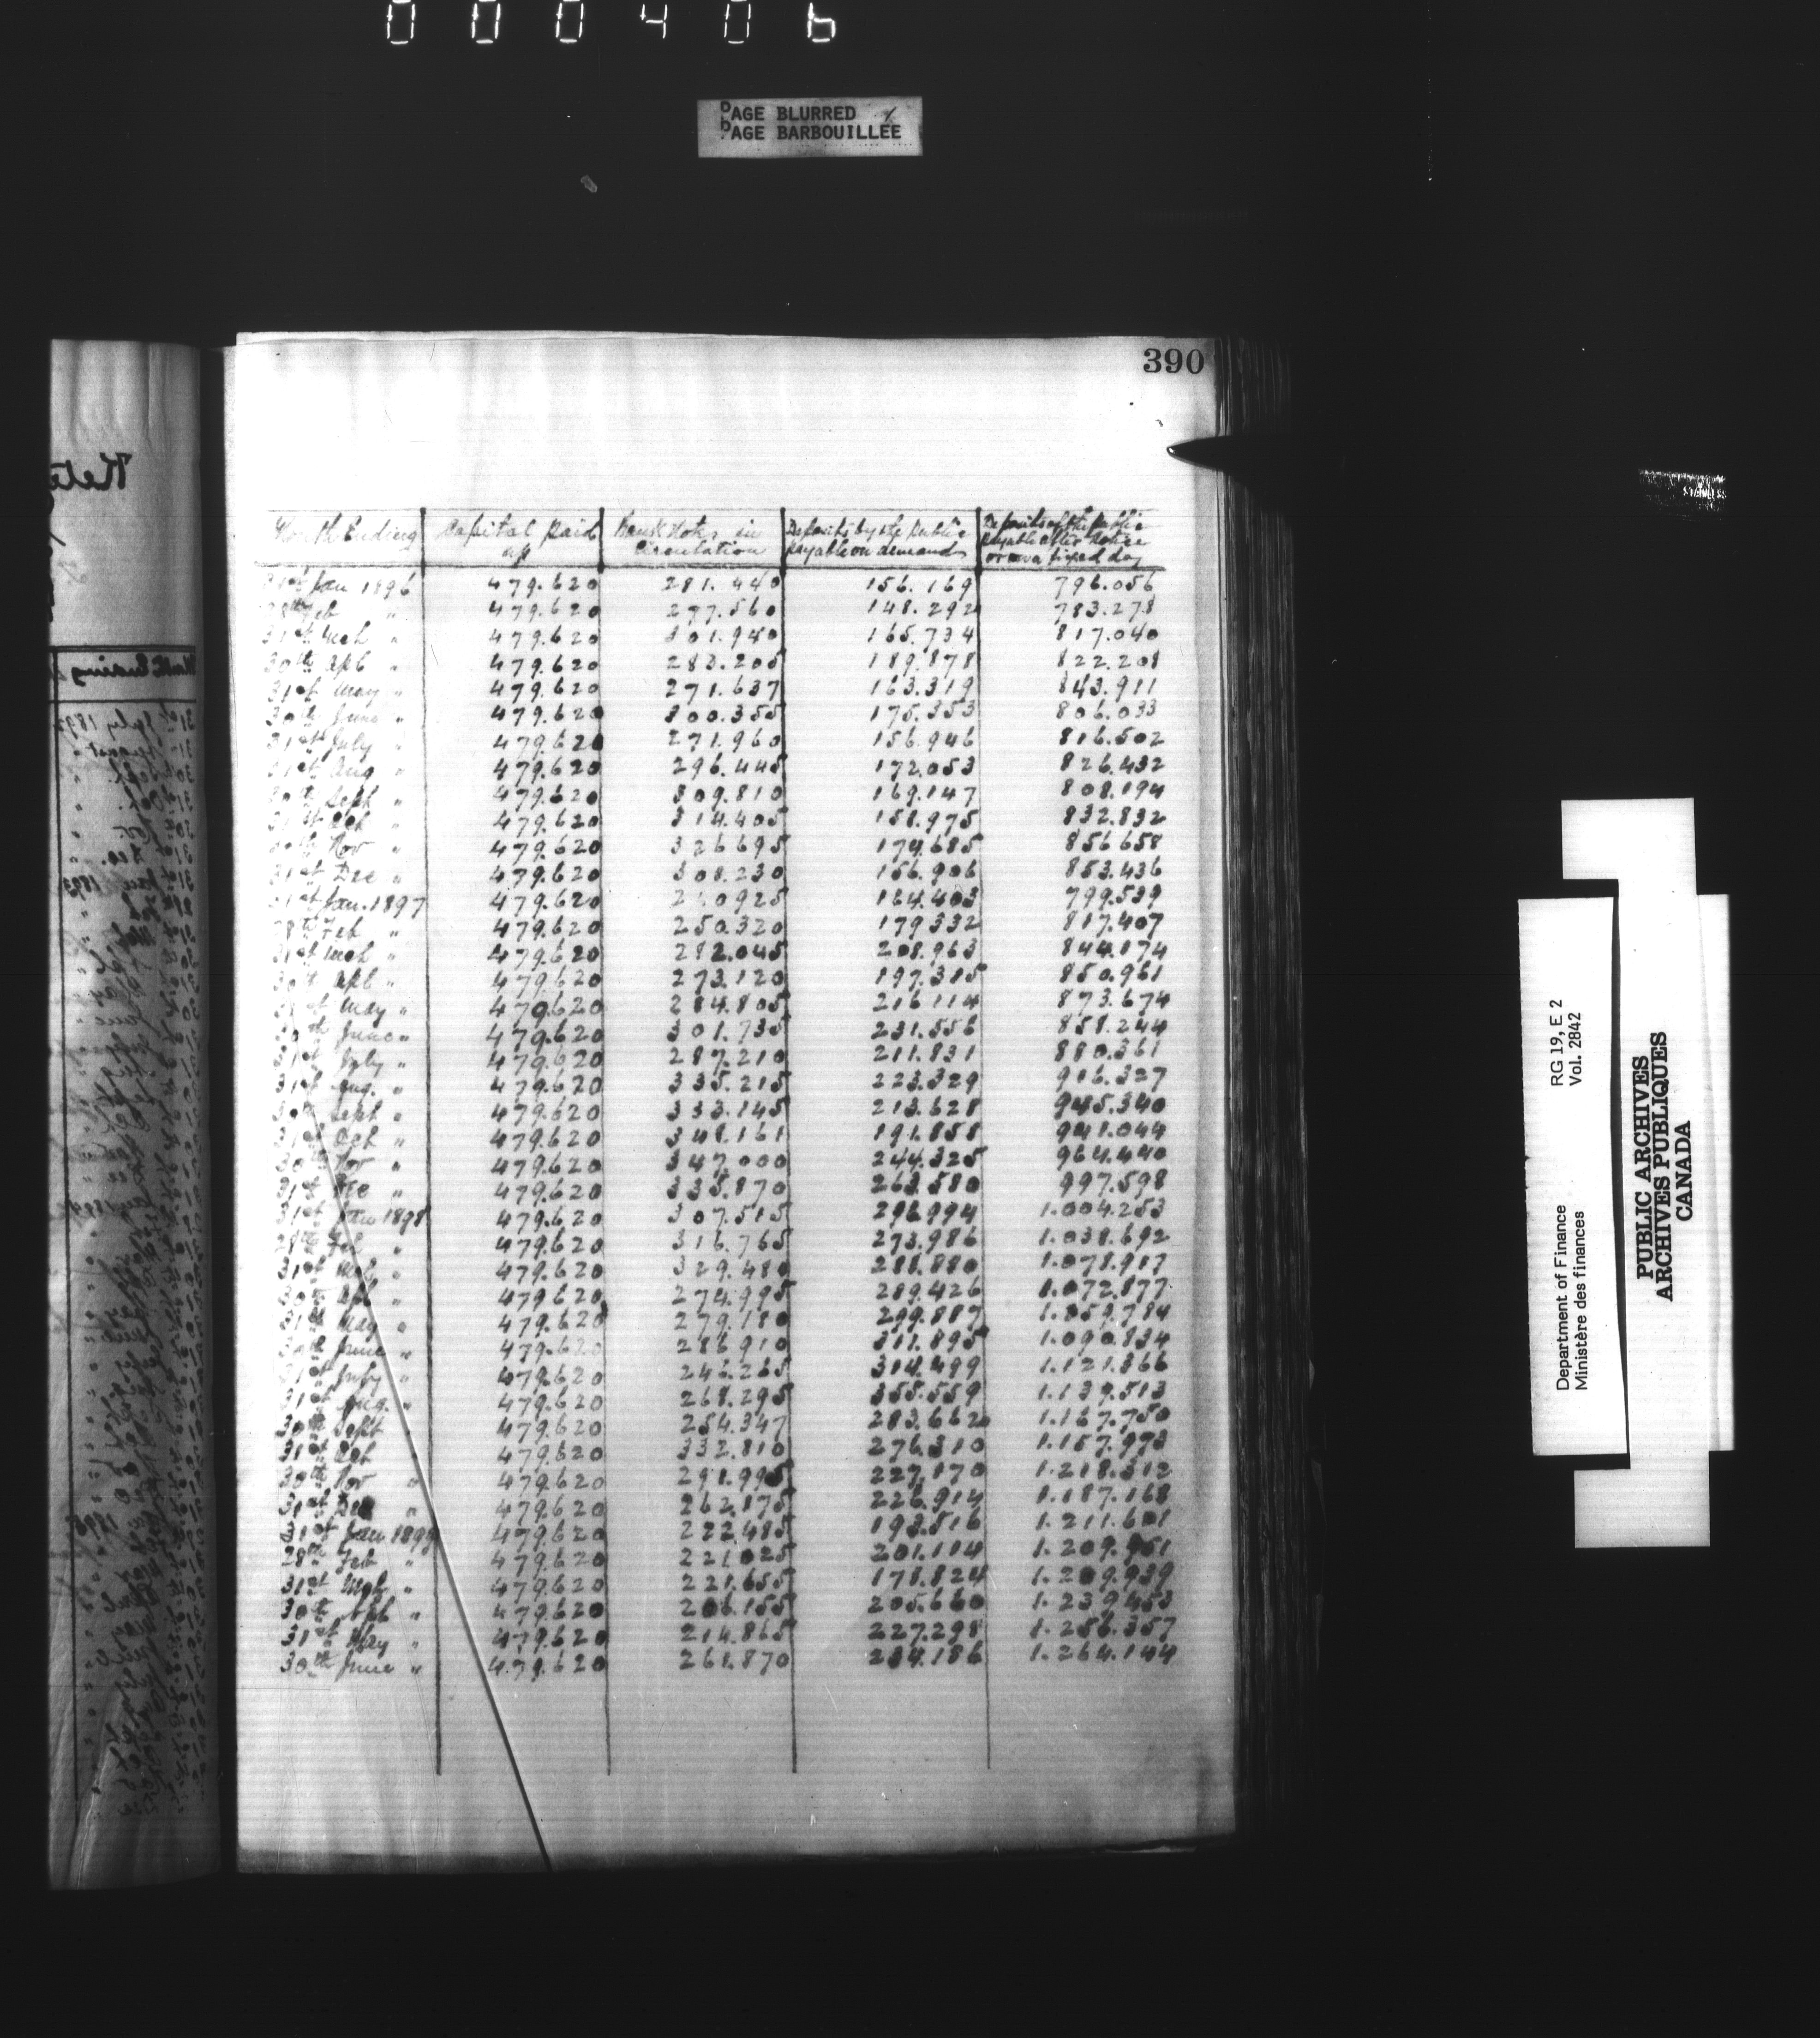 000406
PAGE BLURRED
PAGE BARBOUILLEE
390
Month Ending Capital Paid up Bank Notes in Circulation Deposits by the Public payable on demand Deposits of the Public payable after notice or on a fixed day
31st Jan 1896 479.620 281.440 156.169 796.056
28th Feb " 479.620 277.560 148.292 783.278
31st Mch " 479.620 301.940 165.734 817.040
30th Apl " 479.620 283.205 189.878 822.208
31st May " 479.620 271.637 163.319 843.911
30th June " 479.620 300.355 175.353 806.033
31st July " 479.620 271.960 156.946 816.502
31st Aug " 479.620 296.445 172.053 826.432
30th Sept " 479.620 309.810 169.147 808.194
31st Oct " 479.620 314.405 158.975 832.832
30th Nov " 479.620 326695 174.685 856658
31st Dec " 479.620 308.230 156.906 853.436
31st Jan. 1897 479.620 164.403 799.539
28th Feb " 479.620 250.320 179332 817.407
31st Mch " 479.620 282.045 208.963 844.174
30th Apl " 479620 273.120 197.315 850.961
31st May " 479.620 284.805 216114 873.674
30th June " 479.620 301.735 231.556 858.244
31st July " 479.620 287.210 211.831 880.361
31st Aug. " 479.620 335.215 223.329 916.327
30th Sept " 479.620 333.145 213.628 945.340
31st Oct " 479.620 348.161 191.858 948.044
30th Nov " 479.620 347.000 244.325 964.440
31st Dec " 479.620 335.870 263.580 997.598
31st Jan 1898 479.620 307.515 296.994 1.004.253
28th Feb " 479.620 316.765 273.986 1.038.692
31st Mch " 479.620 329.480 288.880 1.078.917
30th Apl " 479620 274.995 289.426 1.072.877
31st May " 479.620 279.180 299.887 1.059.784
30th June " 479.620 286910 311.895 1.090.834
31st July " 479.620 246.265 314.489 1.121.366
31st Aug. " 479.620 268.295 355.559 1.139.513
30th Sept " 479.620 254.347 283.662 1.167.750
31st Oct " 479.620 332.810 276.310 1.157.973
30th Nov " 479.620 291.995 227.170 1.218.312
31st Dec " 479.620 262.175 226.914 1.187.168
31st Jan 1899 479.620 222485 193.516 1.211.601
28th Feb " 479.620 221025 201.114 1.209.951
31st Mch " 479.620 221.655 178.824 1.209.939
30th Apl " 479.620 206.155 205.660 1.239.453
31st May " 479.620 214.865 227.298 1.256.357
30th June " 479.620 268.870 284.186 1.264.144
Department of Finance RG 19, E 2
Ministère des finances Vol. 2842
PUBLIC ARCHIVES
ARCHIVES PUBLIQUES
CANADA